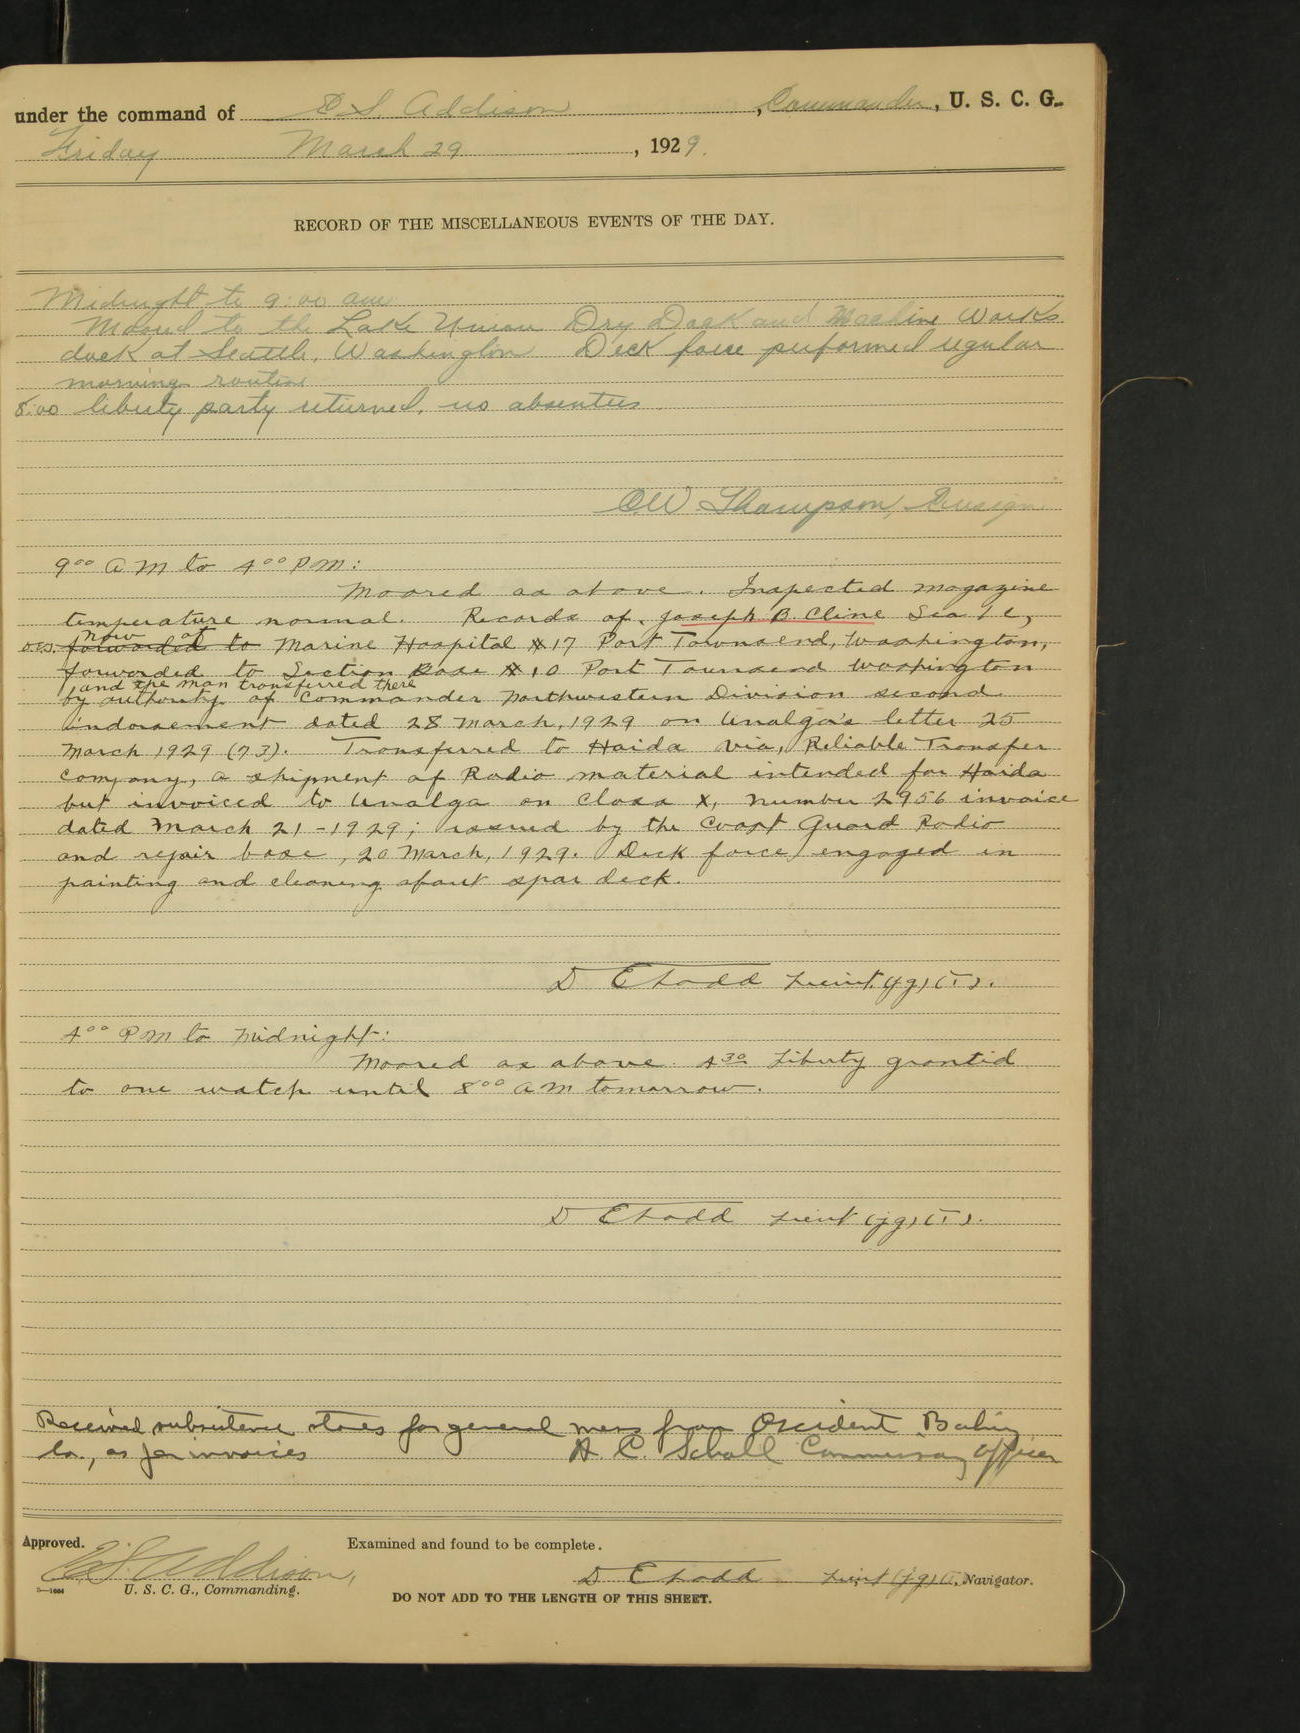 under the command of E. S. Addison, Commander, U. S. C. G.
Friday March 29, 1929.
RECORD OF THE MISCELLANEOUS EVENTS OF THE DAY.
Midnight to 9:00 am
Moored to the Lake Union Dry Dock and Machine Works
dock at Seattle, Washington Deck force performed regular
morning routine
8:00 liberty party returned, no absentees.
O.W. Thompson, Ensign
9⁰⁰ A M to 4⁰⁰ P M:
Moored as above. Inspected magazine
temperature normal. Records of, Joseph B. Cline Sea 1c,
now at
forwarded to Marine Hospital #17 Port Townsend, Washington,
forwarded to Section Base #10 Port Townsend Washington
and the man transferred there
by authority of Commander Northwestern Division second
indorsement dated 28 March, 1929 on Unalga's letter 25
March 1929 (73). Transferred to Haida via, Reliable Transfer
Company, a shipment of Radio material intended for Haida
but invoiced to Unalga on Class X, number 2956 invoice
dated March 21-1929; issued by the Coast Guard Radio
and repair base, 20 March, 1929. Deck force engaged in
painting and cleaning about spar deck.
D E Todd Lieut. (jg) (T).
4⁰⁰ P M to Midnight:
Moored as above. 4³⁰ Liberty granted
to one watch until 8⁰⁰ A M tomorrow.
D E Todd Lieut (jg) (T).
Received subsistence stores for general mess from Occident Baking
Co., as per invoices A. C. Scholl Commissary Officer
Approved. Examined and found to be complete.
E. S. Addison,
D E Todd Lieut (jg) (T), Navigator.
U. S. C. G., Commanding.
DO NOT ADD TO THE LENGTH OF THIS SHEET.